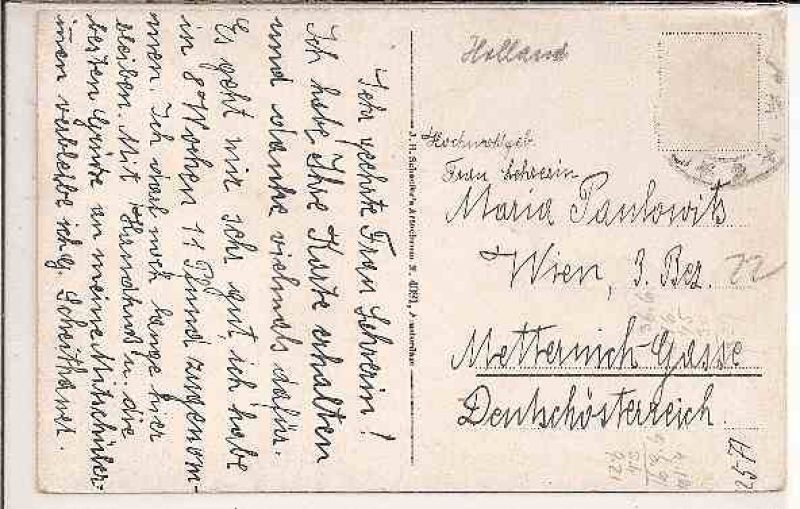 Sehr geehrte Frau Lehrerin!
Ich habe Ihre Karte erhalten
und danke vielmals dafür.
Es geht mir sehr gut, ich habe
in 8 Wochen 11 Pfund zugenom-
men. Ich darf noch lange hier
bleiben. Mit
besten Grüße an meine Mitschüler-
innen verbleibe ich G.
Holland
Hochwohlgeb.
Frau Lehrerin
Maria Paulowits
Wien, 3. Bez.
72
Metternich-Gasse
Deutschösterreich